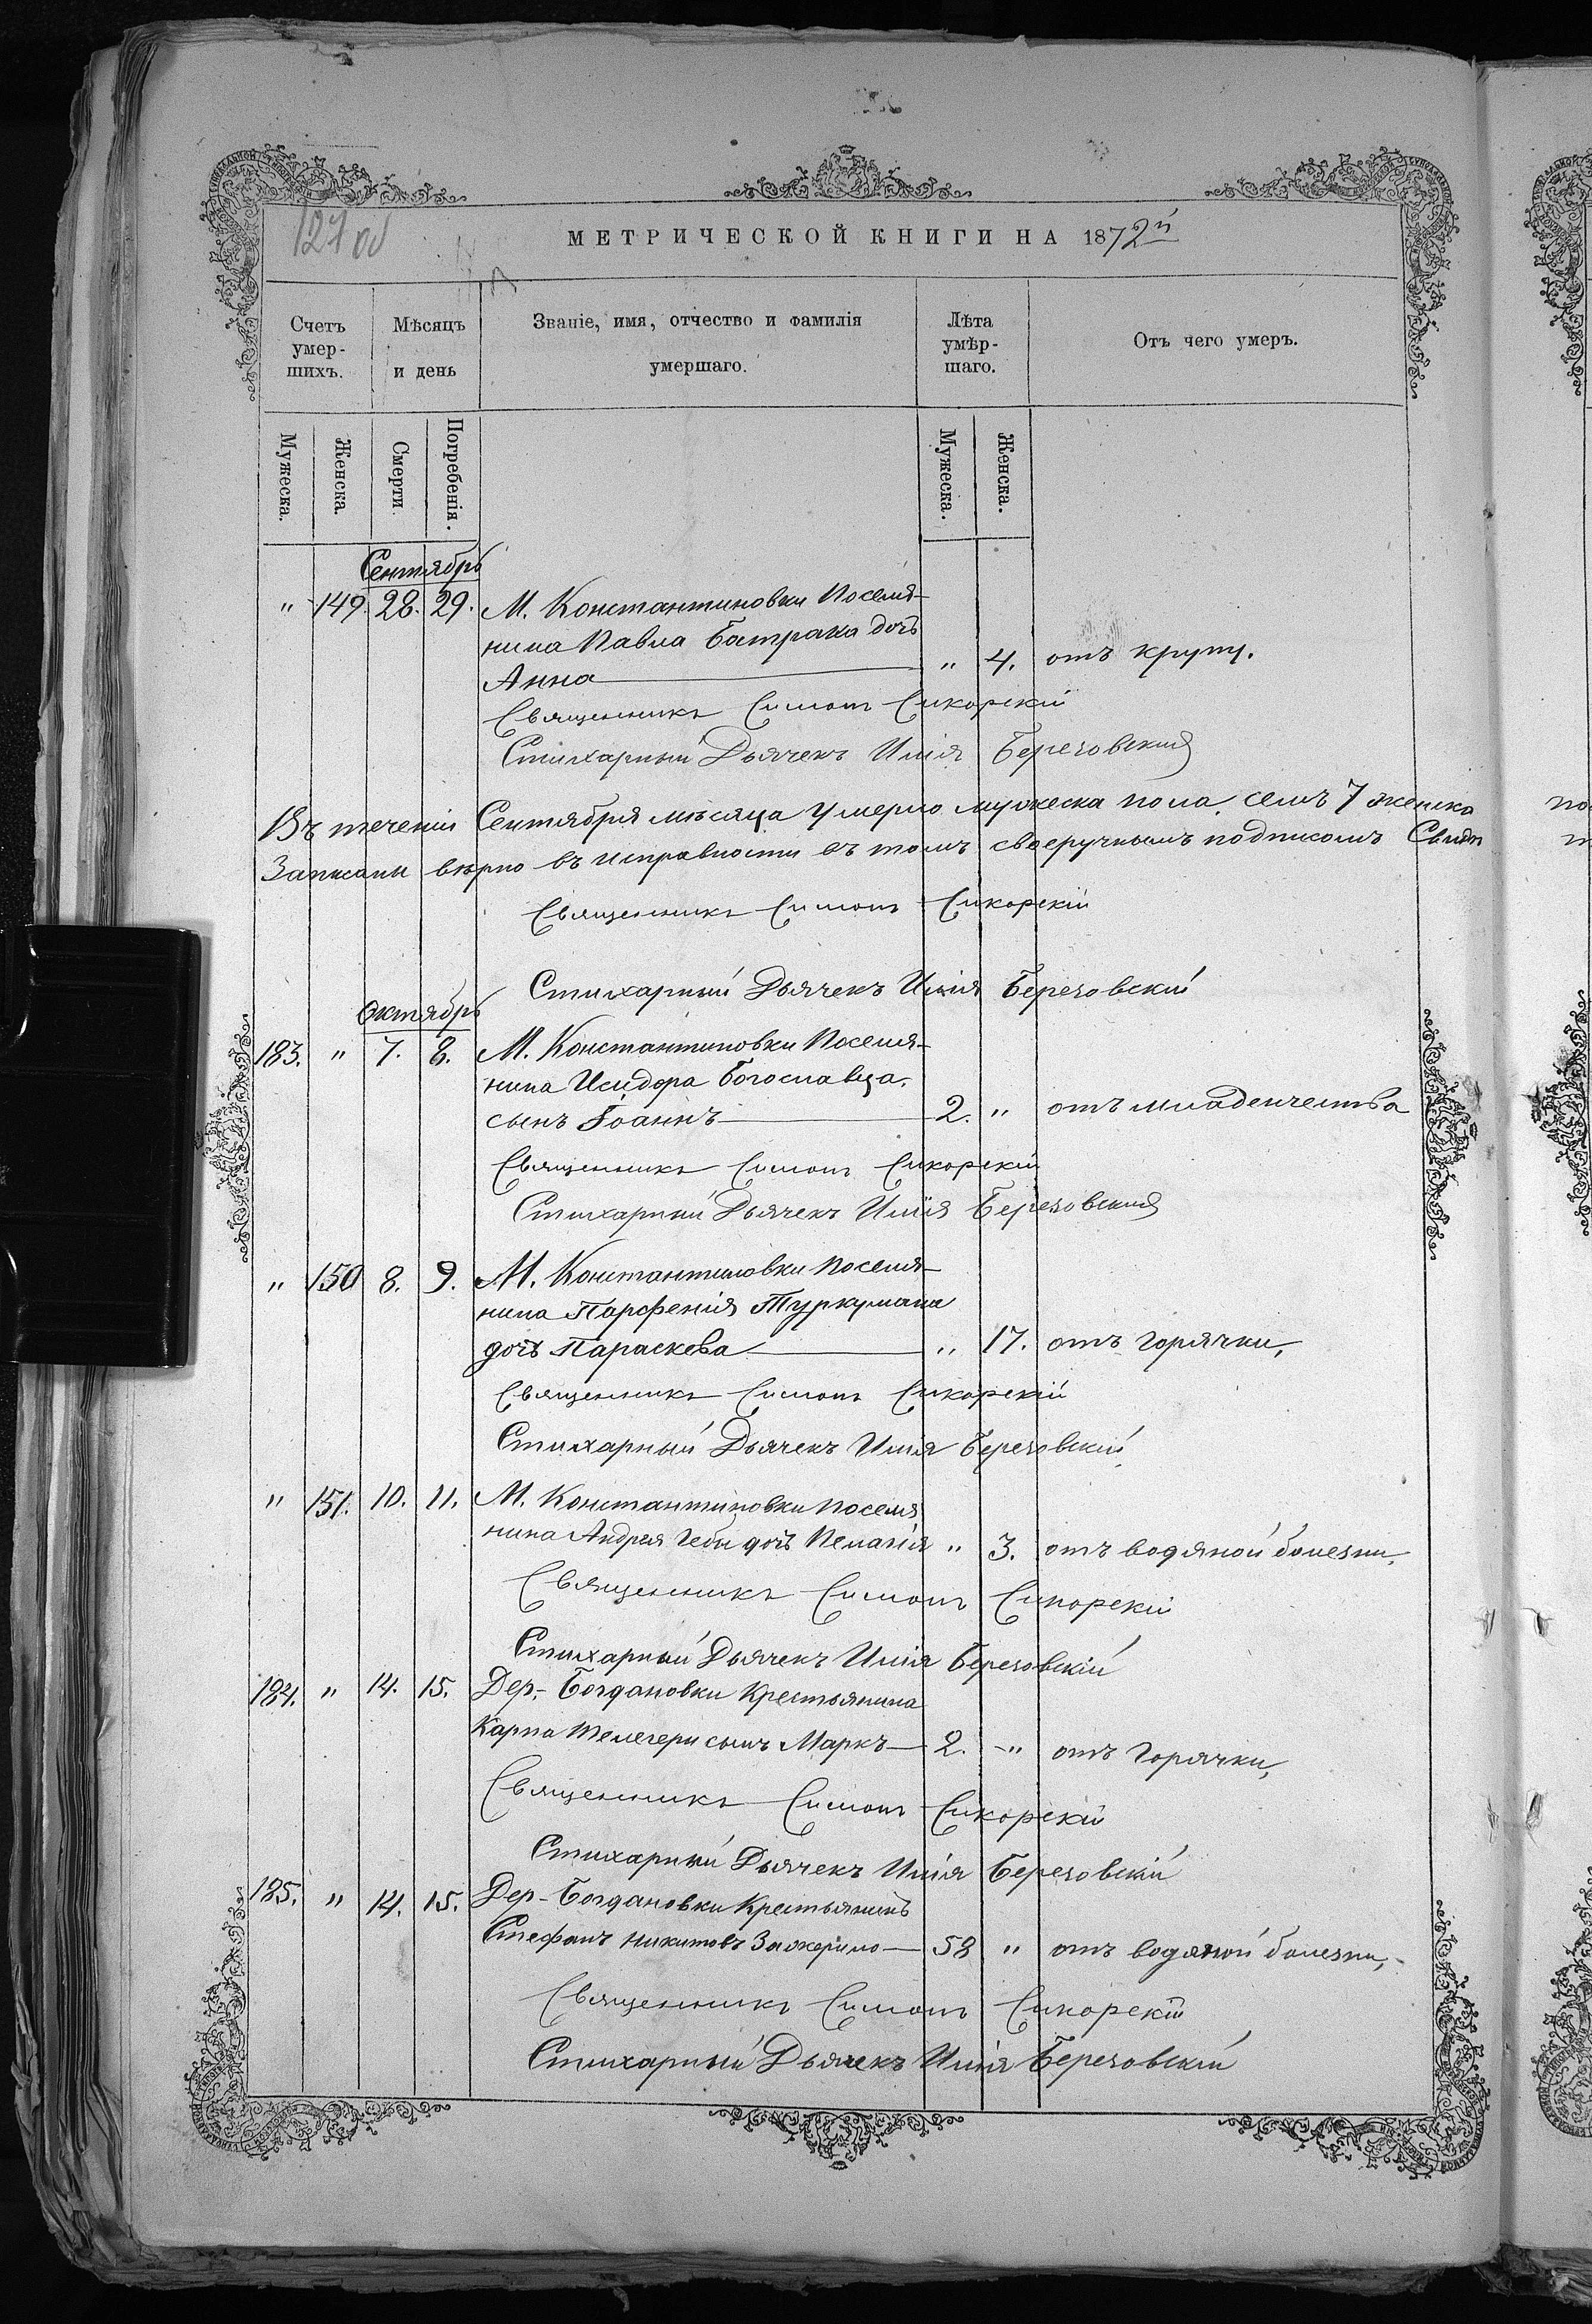 127 об
МЕТРИЧЕСКОЙ КНИГИ НА 1872й
Счетъ умер-шихъ.
Мѣсяцъ и день
Званіе, имя, отчество и фамилія умершаго.
Лѣта умѣр-шаго.
Отъ чего умеръ.
Мужеска. Женска. Смерти. Погребенія. Мужеска. Женска.
Сентябрь
" 149. 28. 29. М. Константиновки Поселя-
нина Павла Батрака дочь
Анна — " 4. отъ крупу.
Священникъ Симонъ Сикорскій
Стихарный Дьячекъ Илія Березовскій
Въ теченіи Сентября мѣсяца умерло мужеска пола семь 7 женска
Записаны вѣрно въ исправности въ томъ своеручнымъ подписомъ
Священникъ Симонъ Сикорскій
Стихарный Дьячекъ Илія Березовскій
Октябрь
183. " 7. 8. М. Константиновки Поселя-
нина Исидора Богославца
сынъ Іоаннъ — 2. " отъ младенчества
Священникъ Симонъ Сикорскій
Стихарный Дьячекъ Илія Березовскій
" 150 8. 9. М. Константиновки Поселя-
нина Парфенія Туркумана
дочь Параскева — " 17. отъ горячки,
Священникъ Симонъ Сикорскій
Стихарный Дьячекъ Илія Березовскій
" 151. 10. 11. М. Константиновки поселя
нина Андрея Гебы дочь Пелагія " 3. отъ водяной болезни,
Священникъ Симонъ Сикорскій
Стихарный Дьячекъ Илія Березовскій
184. " 14. 15. Дер. Богдановки Крестьянина
Карпа Телегери сынъ Маркъ — 2. " отъ горячки,
Священникъ Симонъ Сикорскій
Стихарный Дьячекъ Илія Березовскій
185. " 14. 15. Дер. Богдановки Крестьянинъ
Стефанъ Никитовъ — 58 " отъ водяной болезни,
Священникъ Симонъ Сикорскій
Стихарный Дьячекъ Илія Березовскій